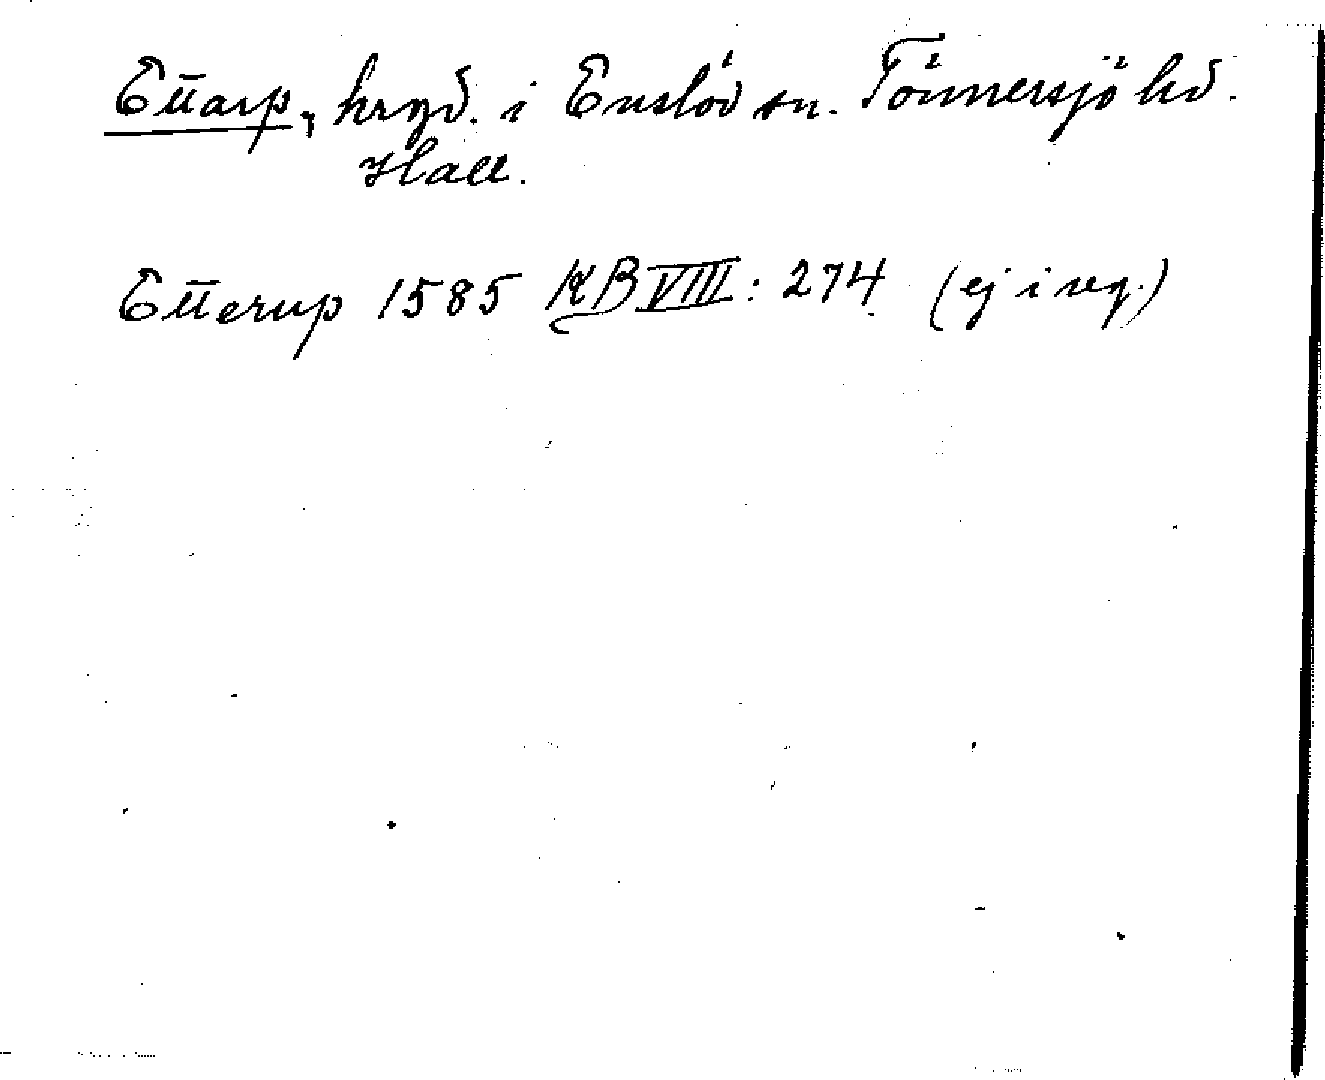 Ettarp, hryd. i Enslöv sn. Tönnersjö hd.
Hall.
Etterup 1585 KB VIII: 274 (ej i reg.)